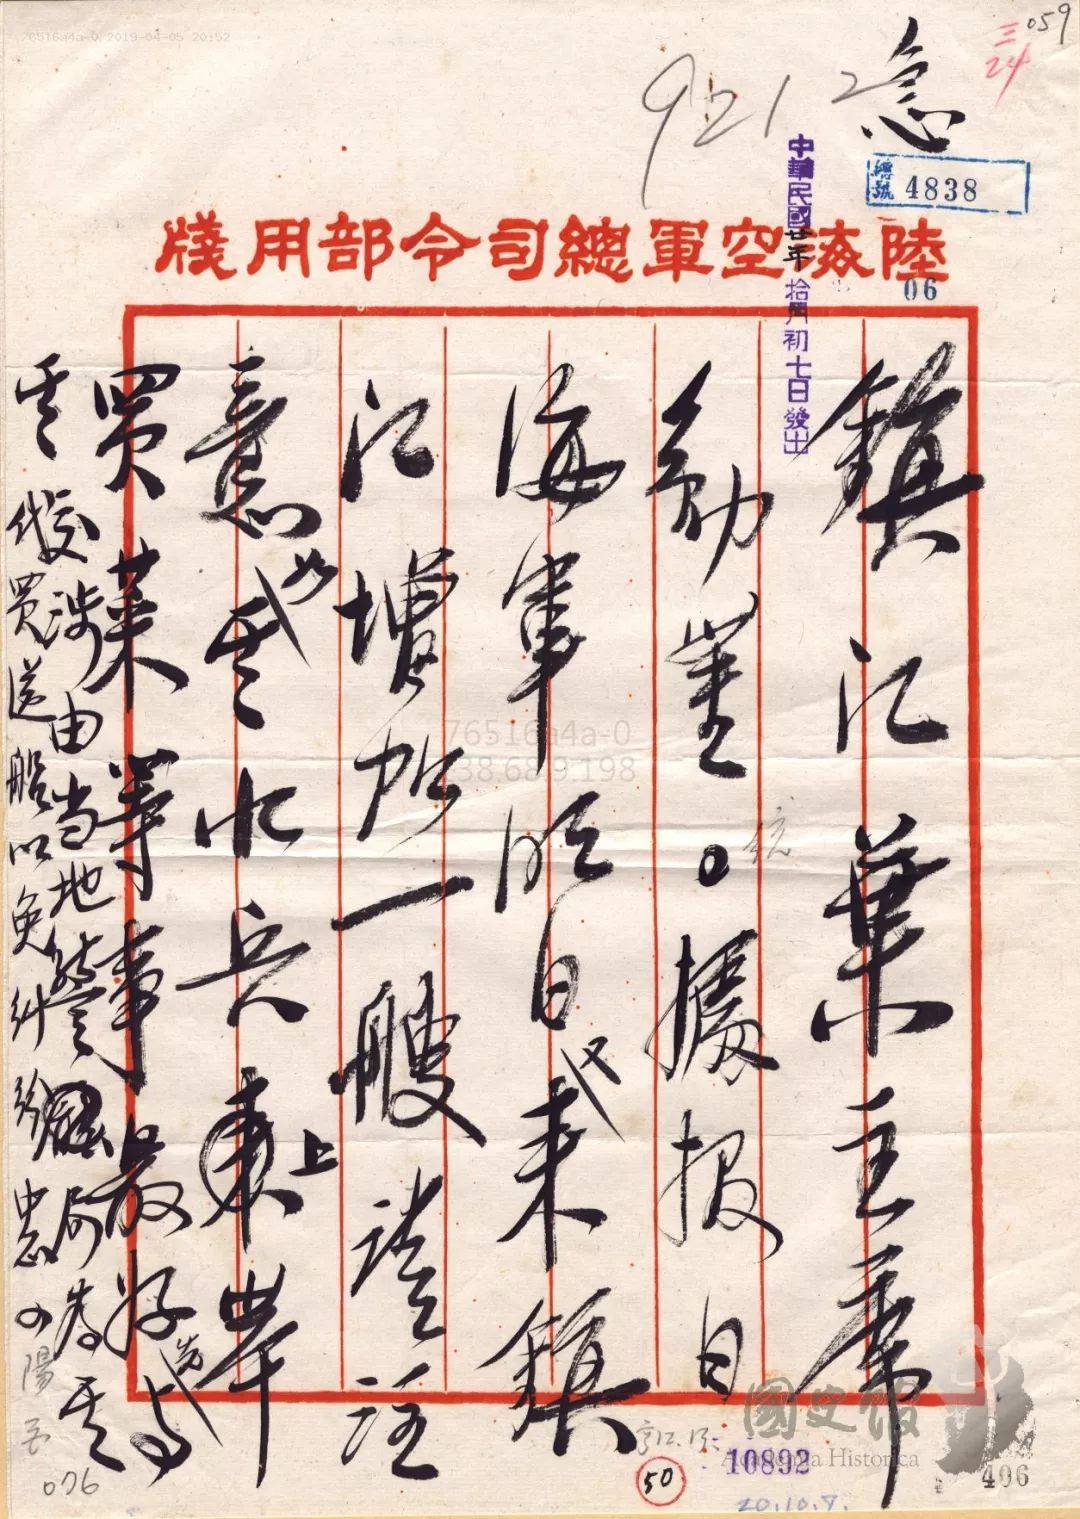 059
三
24
急
9212
總號 4838
中華民國廿年拾月初七日發出
陸海空軍總司令部用牋
06
鎮江葉主席
勛鑒。密據報日
海軍明日又來鎮
江增加一艘請注
意如其水兵上岸
買菜等事最好先與其
交涉由当地警局為
代買送船以免糾紛 中正 陽
10892
50
20.10.7.
406
076
國史館
Academia Historica
76516a4a-0 2019-04-05 20:52
76516a4a-0
238.68.9.198